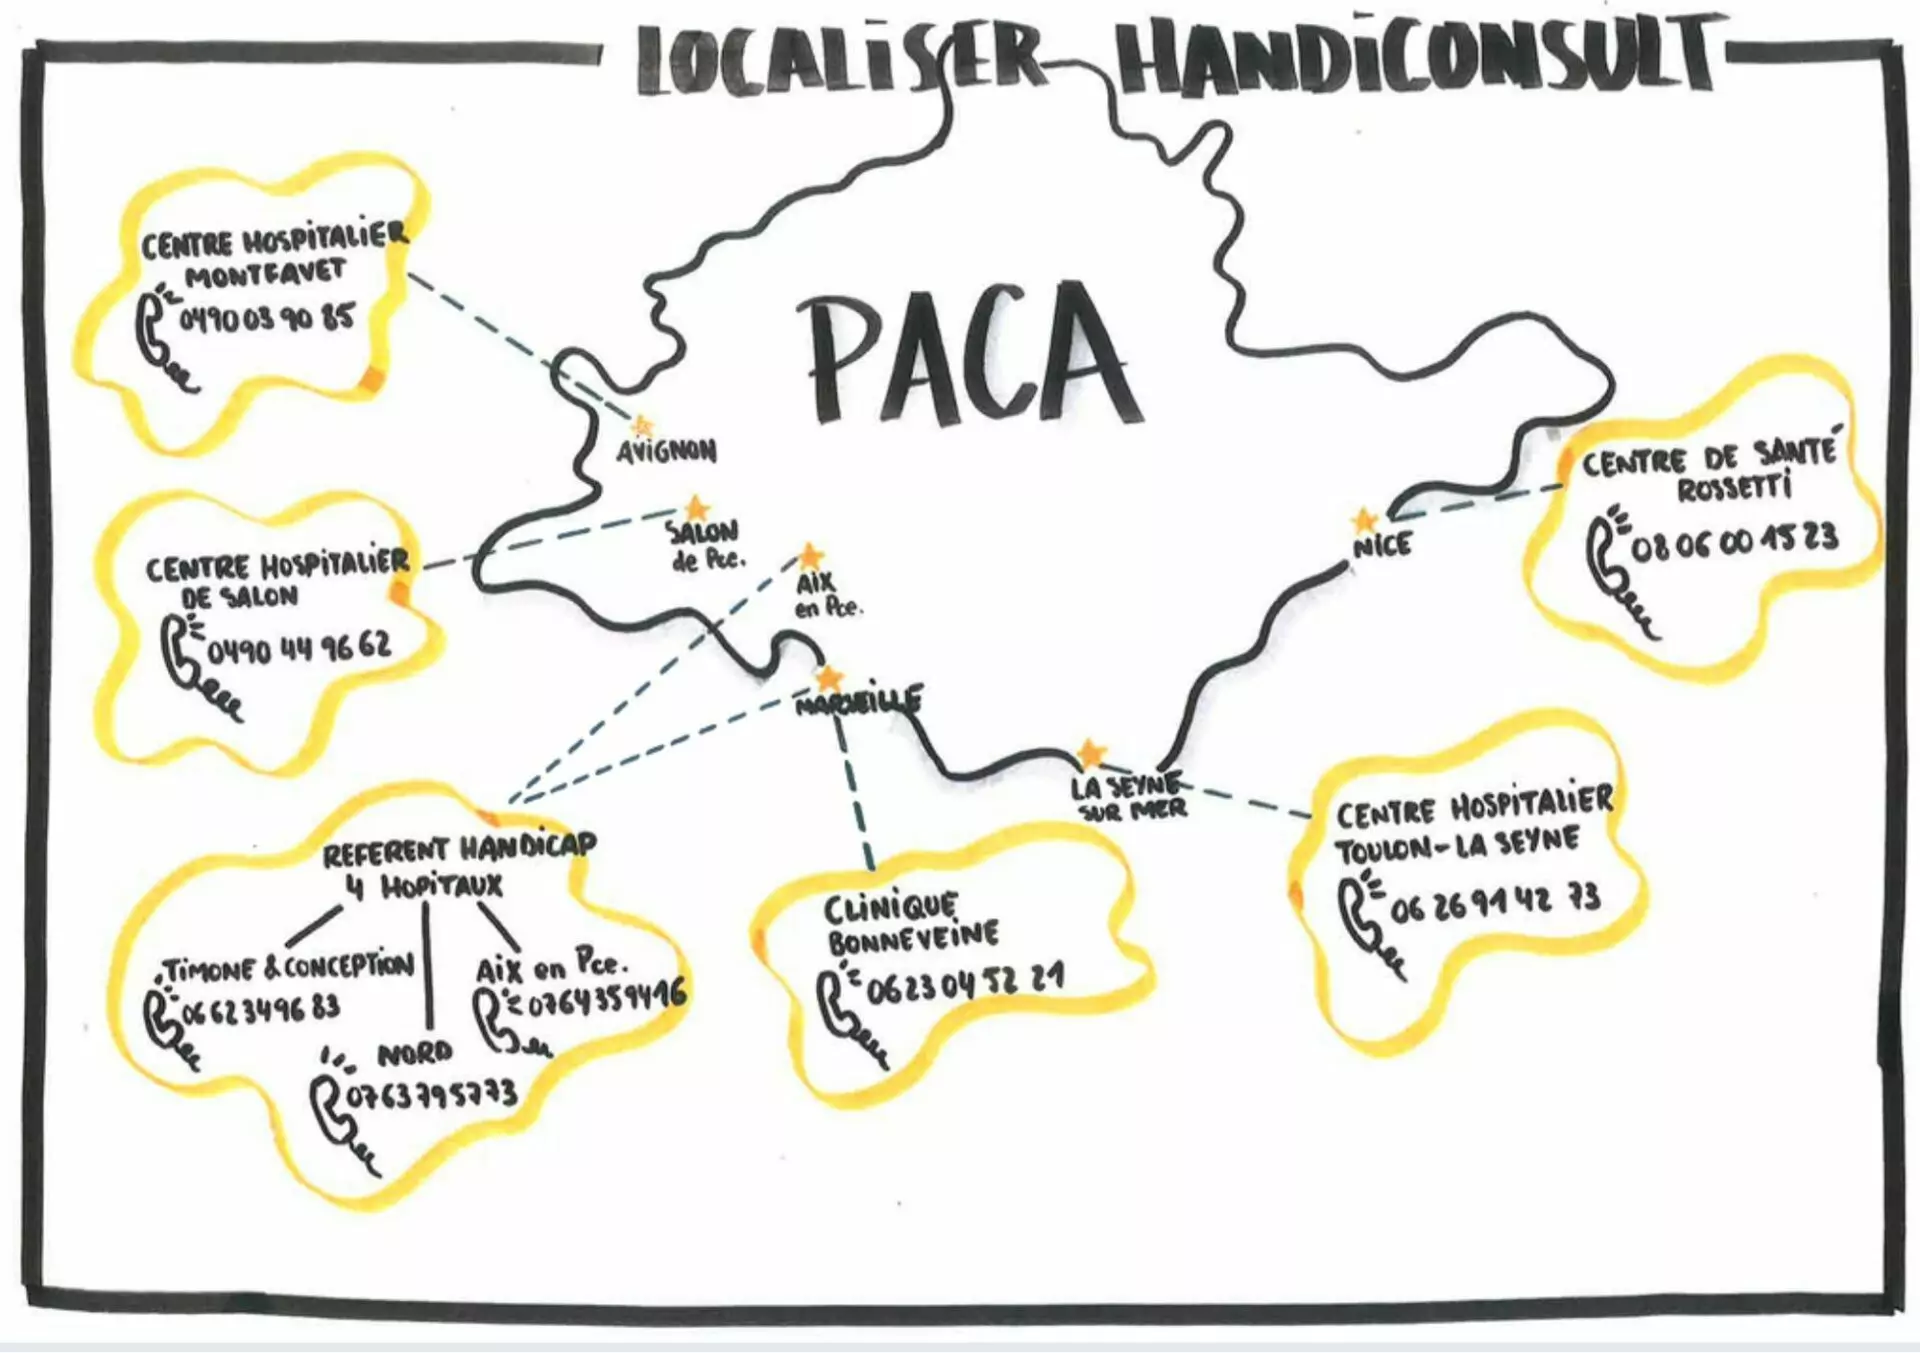 LOCALISER HANDICONSULT
CENTRE HOSPITALIER
MONTFAVET
0490 03 90 85
PACA
AVIGNON
CENTRE DE SANTÉ
ROSSETTI
08 06 00 15 23
SALON
de Pce.
NICE
CENTRE HOSPITALIER
DE SALON
0490 44 96 62
AIX
en Pce.
MARSEILLE
LA SEYNE
SUR MER
CENTRE HOSPITALIER
TOULON-LA SEYNE
06 26 91 42 73
REFERENT HANDICAP
4 HOPITAUX
TIMONE & CONCEPTION
06 62 34 96 83
AIX en Pce.
0764359416
NORD
0763795773
CLINIQUE
BONNEVEINE
06 23 04 52 21